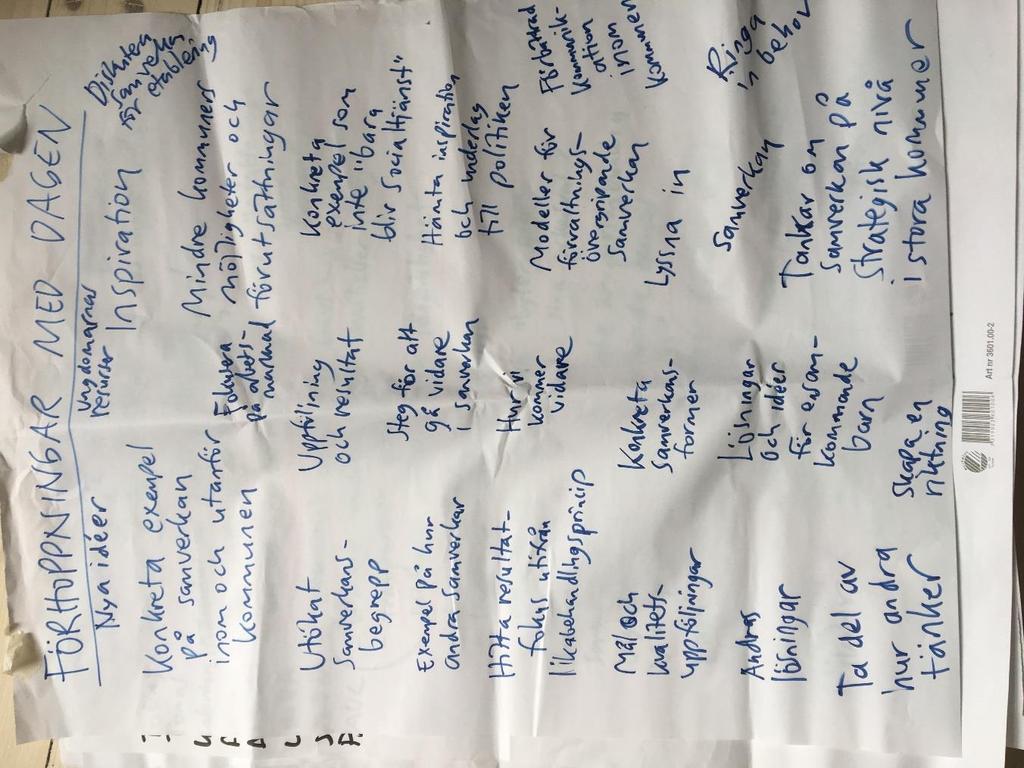 FÖRHOPPNINGAR MED DAGEN
Nya idéer
Ungdomarnas
resurser
Inspiration
Diskutera
samverkan
för
etablering
Konkreta exempel
på samverkan
inom och utanför
kommunen
Fokusera
på arbets-
marknad
Mindre kommuners
möjligheter och
förutsättningar
Utökat
samverkans-
begrepp
Uppföljning
och resultat
Konkreta
exempel som
inte "bara
blir socialtjänst"
Exempel på hur
andra samverkar
Steg för att
gå vidare
i samverkan
Hämta inspiration
och underlag
till
politiken
Hitta resultat-
fokus utifrån
likabehandlingsprincip
Hur vi
kommer
vidare
Modeller för
förvaltnings-
övergripande
samverkan
Förbättrad
kommunik-
ation
inom
kommunen
Mål och
kvalitets-
uppföljningar
Konkreta
samverkans-
former
Lyssna in
Andras
lösningar
Lösningar
och idéer
för ensam-
kommande
barn
Samverkan
Ringa
in behov
Ta del av
hur andra
tänker
Skapa en
riktning
Tankar om
samverkan på
strategisk nivå
i stora kommuner
Art nr 3601.00-2